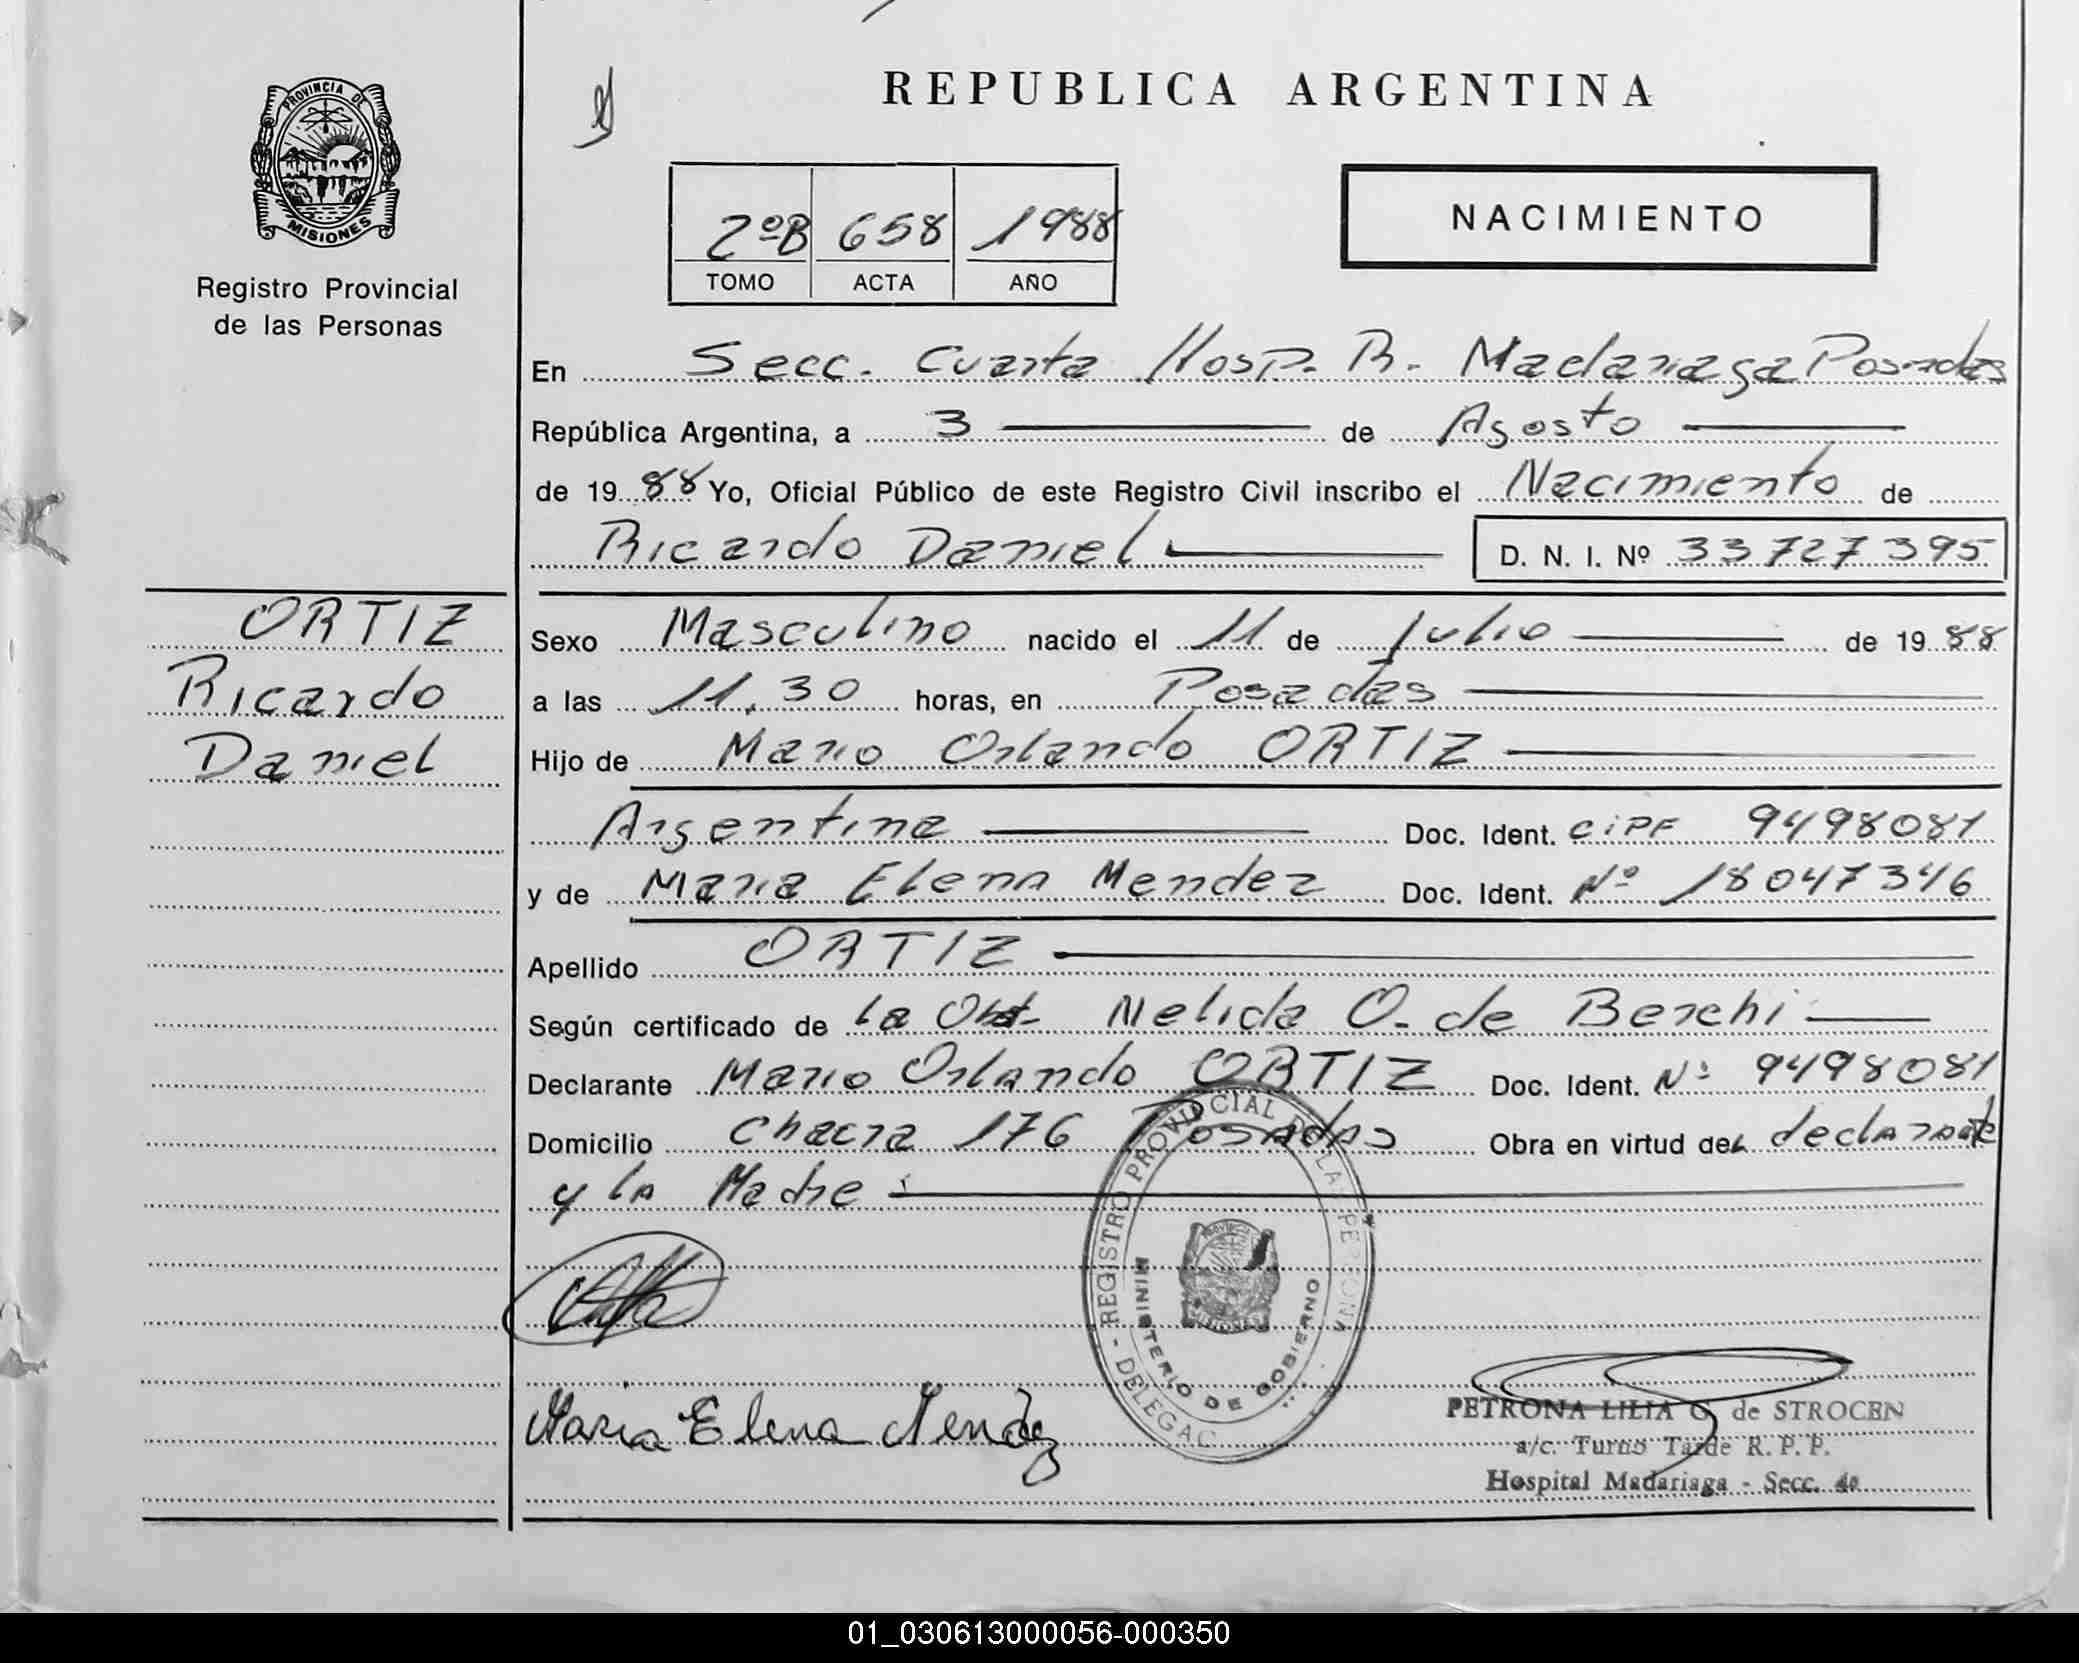 REPUBLICA ARGENTINA
PROVINCIA DE
MISIONES
Registro Provincial
de las Personas
2ºB 658 1988
TOMO ACTA AÑO
NACIMIENTO
En Secc. Cuarta Hosp. R. Madariaga Posadas
República Argentina, a 3 de Agosto
de 19 88 Yo, Oficial Público de este Registro Civil inscribo el Nacimiento de
Ricardo Daniel D. N. I. Nº 33727395
ORTIZ
Ricardo
Daniel
Sexo Masculino nacido el 11 de Julio de 19 88
a las 11.30 horas, en Posadas
Hijo de Mario Orlando ORTIZ
Argentina Doc. Ident. CiPF 9498081
y de Maria Elena Mendez Doc. Ident. Nº 18047346
Apellido ORTIZ
Según certificado de la Obst. Nelida O. de Berchi
Declarante Mario Orlando ORTIZ Doc. Ident. Nº 9498081
Domicilio Chacra 176 Posadas Obra en virtud del declarante
y la Madre
REGISTRO PROVINCIAL DE LAS PERSONA
MINISTERIO DE GOBIERNO
DELEGAC
Maria Elena Mendez
PETRONA LILIA G. de STROCEN
a/c. Turno Tarde R. P. P.
Hospital Madariaga - Secc. 4a
01_030613000056-000350